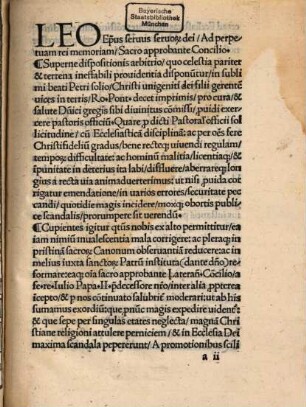 Bayerische
Staatsbibliothek
München
LEO Ep̄us seruus seruoꝝ dei / Ad perpe
tuam rei memoriam / Sacro approbante Concilio.
¶Superne dispositionis arbitrio / quo celestia pariter
& terrena ineffabili prouidentia disponūtur / in subli
mi beati Petri solio / Christi unigeniti dei filii gerentē
uices in terris / Ro. Pont. decet imprimis / pro cura / &
salute Dn̄ici gregis sibi diuinitus cōmissi / puidi exer
cere pastoris officiū. Quare ꝓ dicti Pastoral' officii sol
licitudine / cū Ecclesiasticā disciplinā: ac per oēs fere
Christifideliū gradus / bene recteqꝫ uiuendi regulam /
tempoꝝ difficultate: ac hominū malitia / licentiaqꝫ / &
ipunitate in deterius ita labi / diffluere / aberrareqꝫ lon
gius a recta uia animaduertimus: ut nisi puida cor
rigatur emendatione / in uarios errores / securitate pec
candi / quotidie magis incidere / moxqꝫ obortis publi
ce scandalis / prorumpere sit uerendū.
¶Cupientes igitur qtū nobis ex alto permittitur / ea
iam nimiū inualescentia mala corrigere: ac pleraqꝫ in
pristinā sacroꝝ Canonum obseruantiā reducere: ac in
melius iuxta sanctoꝝ Patrū instituta / (dante dn̄o) re
formare: eaqꝫ oīa sacro approbante Lateran̄. Cōcilio / a
fe. re. Iulio Papa. II. p̄decessore nr̄o / inter alia ꝓpterea
icepto / & p nos cōtinuato salubriť moderari: ut ab his
sumamus exordiū: que p̄nuc magis expedire uidenť: &
que sepe per singulas etates neglecta / magnā Chri
stiane religioni attulere perniciem / & in Ecclesia Dei
maxima scandala pepererunt / A promotionibus scili
a ii